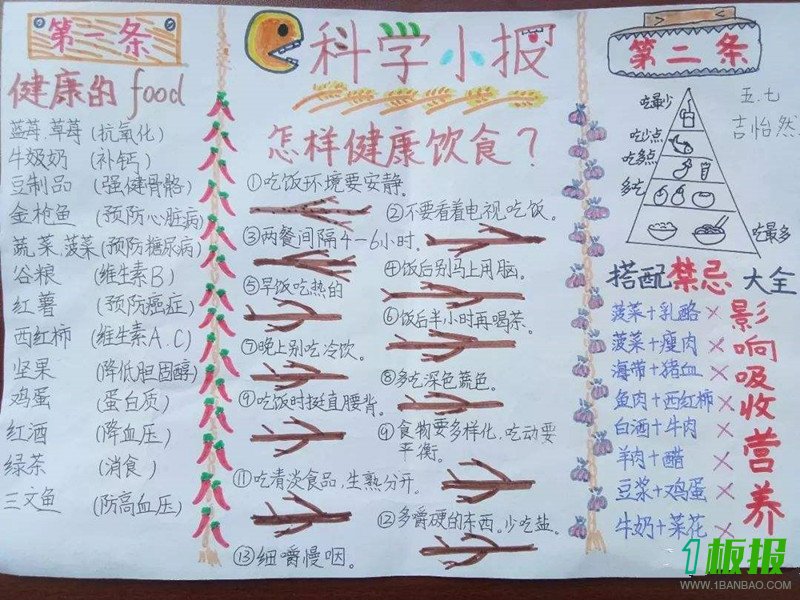 第一条
健康的food
蓝莓 草莓 (抗氧化)
牛奶奶 (补钙)
豆制品 (强健骨骼)
金枪鱼 (预防心脏病)
蔬菜.菠菜 (预防糖尿病)
谷粮 (维生素B)
红薯 (预防癌症)
西红柿 (维生素A.C)
坚果 (降低胆固醇)
鸡蛋 (蛋白质)
红酒 (降血压)
绿茶 (消食)
三文鱼 (防高血压)
科学小报
怎样健康饮食?
①吃饭环境要安静。
②不要看着电视吃饭。
③两餐间隔4-6小时.
④饭后别马上用脑。
⑤早饭吃热的
⑥饭后半小时再喝茶。
⑦晚上别吃冷饮。
⑧多吃深色蔬色。
⑨吃饭时挺直腰背。
④食物要多样化,吃动要
平衡。
⑪吃清淡食品,生熟分开.
⑫多嚼硬的东西.少吃盐。
⑬细嚼慢咽。
第二条
五.七
吉怡然
吃最少
吃少点
吃多点
多吃
吃最多
搭配禁忌大全
菠菜+乳酪×
菠菜+瘦肉×
海带+猪血×
鱼肉+西红柿×
白酒+牛肉×
羊肉+醋×
豆浆+鸡蛋×
牛奶+菜花×
影响吸收营养
1板报
WWW.1BANBAO.COM